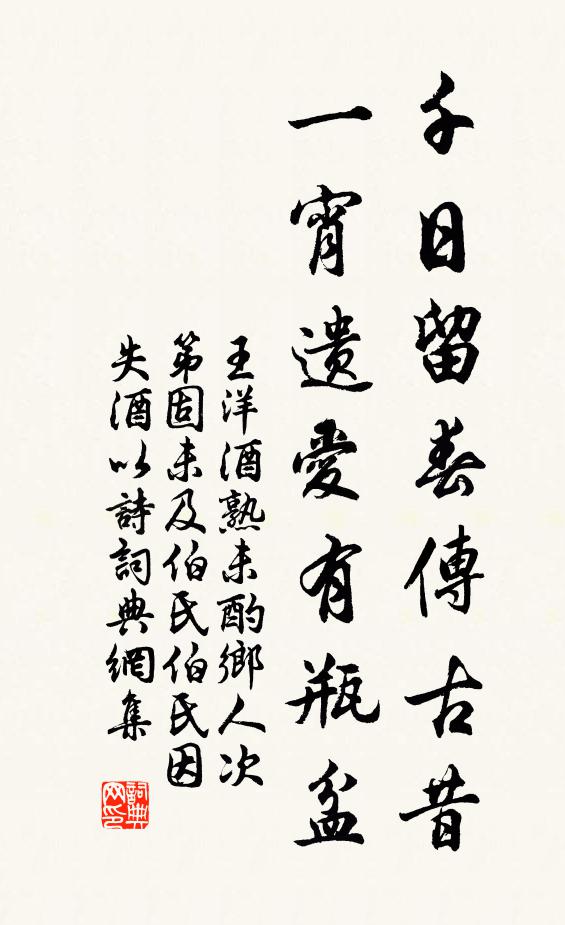 千日留春傳古昔
一宵遺愛有瓶盆
王洋酒熟未酌鄉人次
第固未及伯氏伯氏因
失酒以詩詞典網集
詞典
网印